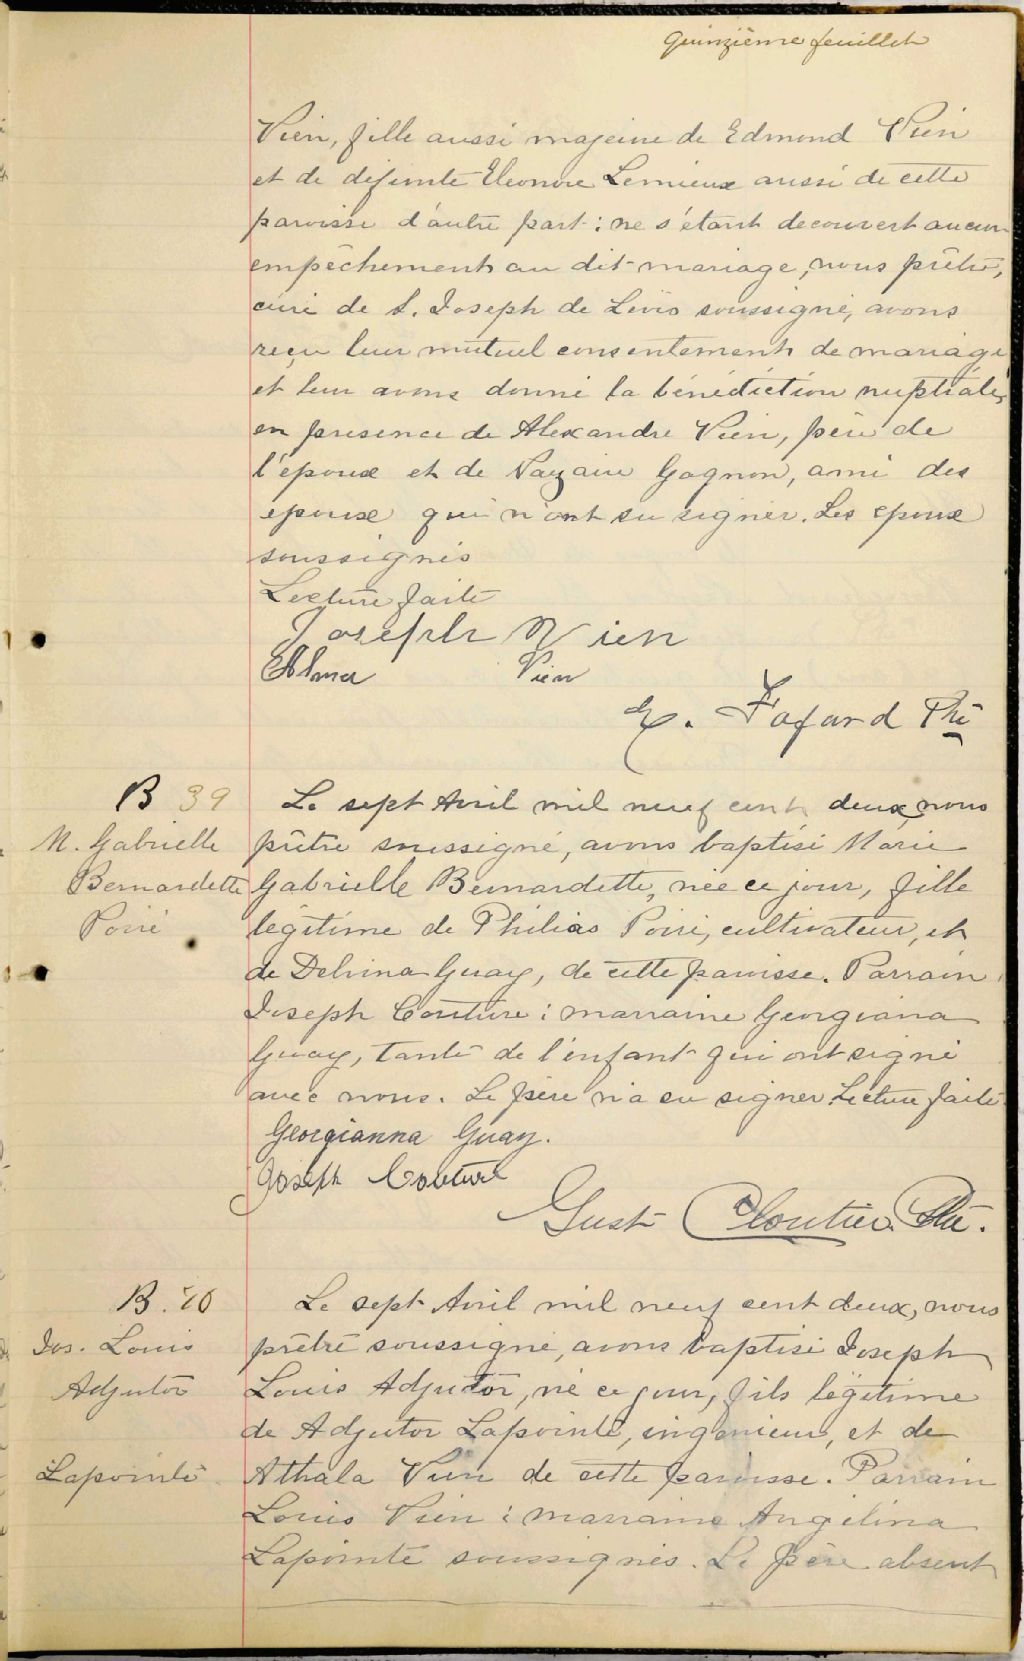 Quinzième feuillet
Vien, fille aussi majeure de Edmond Vien
et de défunte Eleonore Lemieux aussi de cette
paroisse d'autre part : ne s'étant decouvert aucun
empêchement au dit mariage, nous prêtre,
curé de S. Joseph de Lévis soussigné, avons
reçu leur mutuel consentement de mariage
et leur avons donné la bénédiction nuptiale,
en presence de Alexandre Vien, père de
l'époux et de Nazaire Gagnon, ami des
epoux qui n'ont su signer. Les epoux
soussignés
Lecture faite
Joseph Vien
Alma Vien
E. Fafard Ptre
B 39
M. Gabrielle
Bernardette
Poiré
Le sept Avril mil neuf cent deux, nous
prêtre soussigné, avons baptisé Marie
Gabrielle Bernardette, née ce jour, fille
légitime de Philias Poiré, cultivateur, et
de Delvina Guay, de cette paroisse. Parrain
Joseph Couture ; marraine Georgiana
Guay, tante de l'enfant qui ont signé
avec nous. Le père n'a su signer. Lecture faite
Georgianna Guay.
Joseph Couture
Gust Cloutier Ptre.
B. 40
Jos. Louis
Adjutor
Lapointe
Le sept Avril mil neuf cent deux, nous
prêtre soussigné, avons baptisé Joseph
Louis Adjutor, né ce jour, fils légitime
de Adjutor Lapointe, ingénieur, et de
Athala Vien de cette paroisse. Parrain
Louis Vien ; marraine Angélina
Lapointe soussignés. Le père absent